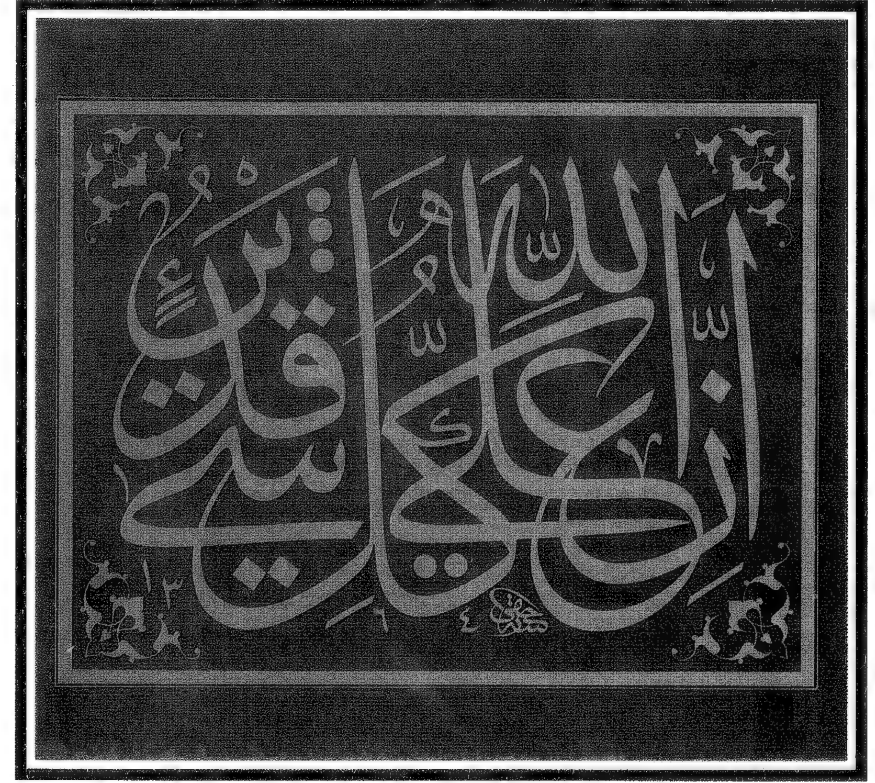 إِنَّ اللّٰهَ عَلَىٰ كُلِّ شَيْءٍ قَدِيرٌ